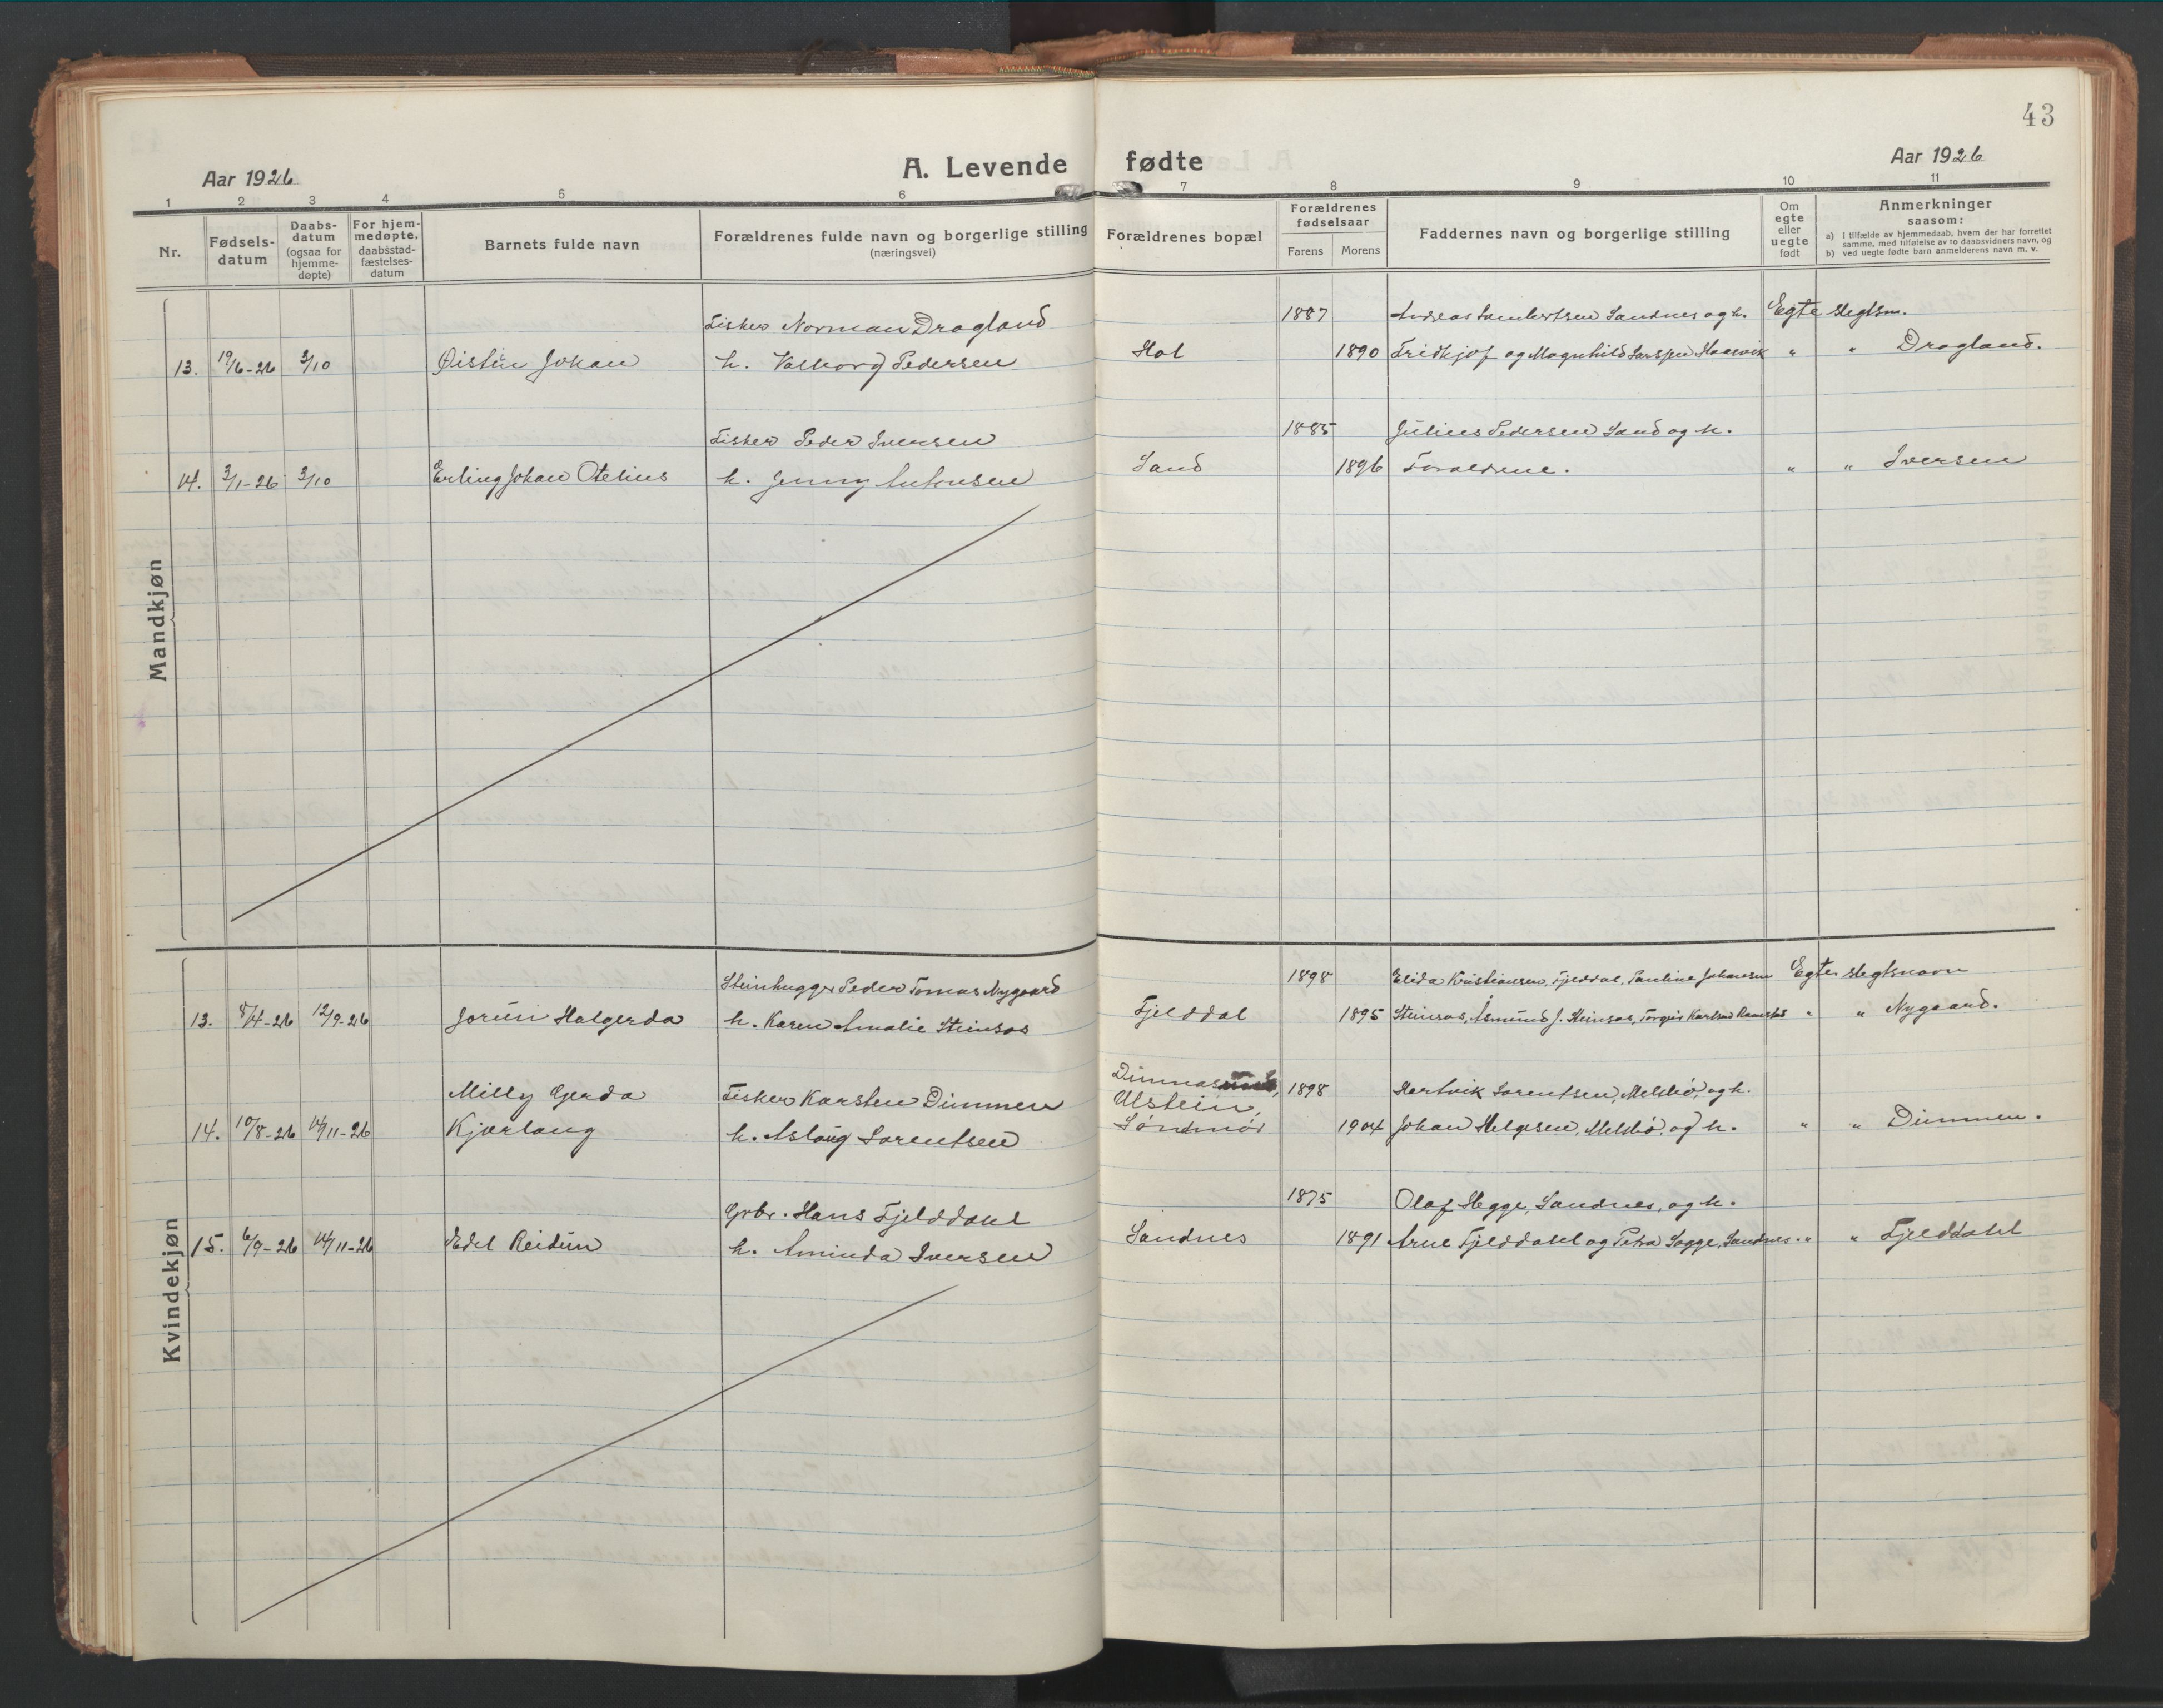 43
Aar 1926
A. Levende fødte
Aar 1926
1 2 3 4 5 6 7 8 9 10 11
Nr.
Fødsels-
datum
Daabs-
datum
(ogsaa for
hjemme-
døpte)
For hjem-
medøpte,
daabsstad-
fæstelses-
datum
Barnets fulde navn
Forældrenes fulde navn og borgerlige stilling
(næringsvei)
Forældrenes bopæl
Forældrenes
fødselsaar
Farens Morens
Faddernes navn og borgerlige stilling
Om
egte
eller
uegte
født
Anmerkninger
saasom:
a) i tilfælde av hjemmedaab, hvem der har forrettet
samme, med tilføielse av to daabsvidners navn, og
b) ved uegte fødte barn anmelderens navn m. v.
Mandkjøn
Fisker Norman Dragland 1887 Andreas Lambertsen Sandnes og h. Egte slegtsn.
13. 19/6-26 3/10 Øistein Johan h. Valborg Pedersen Hol 1890 Fridthjof og Magnhild " " Dragland.
Fisker Peder Iversen 1885 Julius Pedersen Sand og h.
14. 3/1-26 3/10 Erling Johan Otelius h. Jenny Antonsen Sand 1896 Forældrene. " " Iversen
Kvindekjøn
Steinhugger Peder Tomas Nygaard 1898 Elida Kristiansen, Fjelddal, Pauline Johansen Egte slegtsnavn
13. 8/4-26 12/9-26 Jorun Halgerda h. Karen Amalie Steinsas Fjelddal 1895 Steinsas, Asmund J. Steinsas, Karlsen " " Nygaard.
Milly Gerda Fisker Karsten Dimmen 1898 Hartvik Lorentsen, Melkbø, og h.
Ulstein,
14. 10/8-26 14/11-26 Kjærlaug h. Aslaug Lorentsen Søndmør 1904 Johan Helgesen, Melkbø, og h. " " Dimmen.
Grbr. Hans Fjelddahl 1875 Olaf Hegge, Sandnes, og h.
15. 6/9-26 14/11-26 Edel Reidun h. Aminda Iversen Sandnes 1891 Arne Fjelddahl og Petra Sagge, Sandnes. " " Fjelddahl